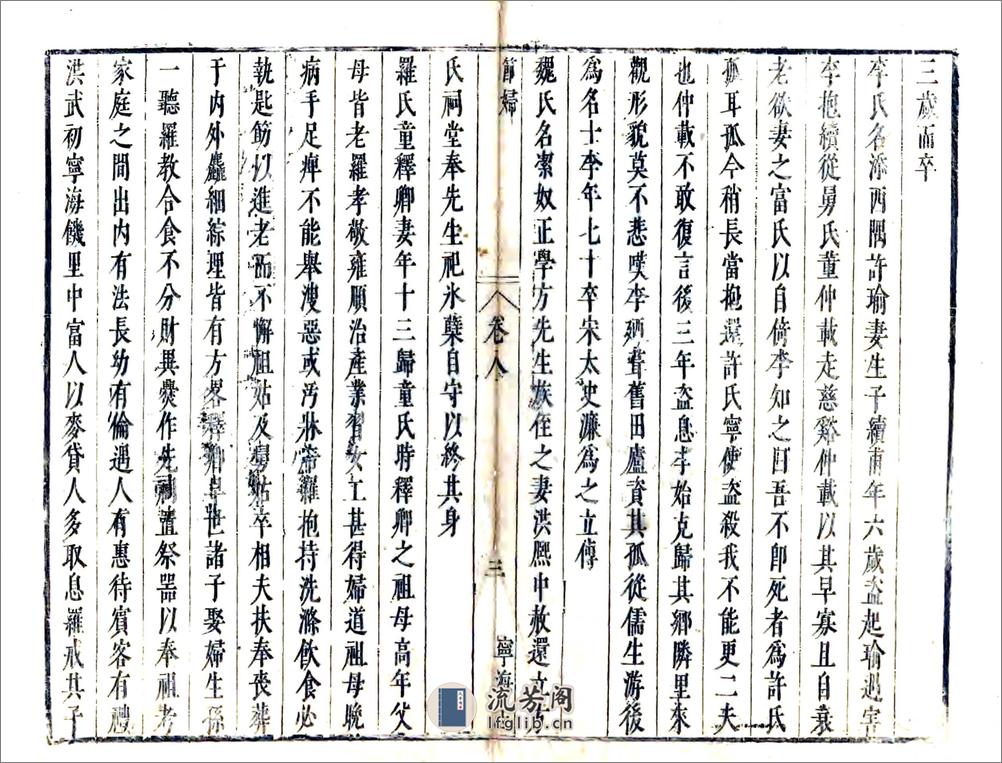 三歲而卒
李氏名添西隅許瑜妻生子續甫年六歲盜起瑜遇害
李抱續從舅氏董仲載走慈谿仲載以其早寡且自衰
老欲妻之富氏以自倚李知之曰吾不即死者為許氏
孤耳孤今稍長當抱還許氏寧使盜殺我不能更二夫
也仲載不敢復言後三年盜息李始克歸其鄉隣里來
觀形貌莫不悲嘆李廼葺舊田廬資其孤從儒生游後
為名士李年七十卒宋太史濂為之立傳
魏氏名潔奴正學方先生族侄之妻洪熙中赦還立方
節婦
卷八
三
寧海
氏祠堂奉先生祀氷蘗自守以終其身
羅氏童釋卿妻年十三歸童氏時釋卿之祖母高年父
母皆老羅孝敬雍順治產業習女工甚得婦道祖母晚
病手足痺不能舉溲惡或汚牀笫羅抱持洗滌飲食必
執匙筯以進老而不懈祖姑及舅姑卒相夫扶奉喪葬
于內外麤細綜理皆有方畧釋卿早世諸子娶婦生孫
一聽羅教合食不分財異爨作先祠置祭器以奉祖考
家庭之間出內有法長幼有倫遇人有惠待賓客有禮
洪武初寧海饑里中富人以麥貸人多取息羅戒其子
流芳阁
lfglib.cn